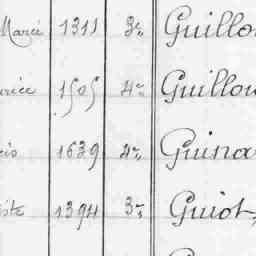 Marcé 1311 3e Guillo
rice 1505 4e Guillou
cis 1639 4e Guina
iste 1394 3e Guiot,